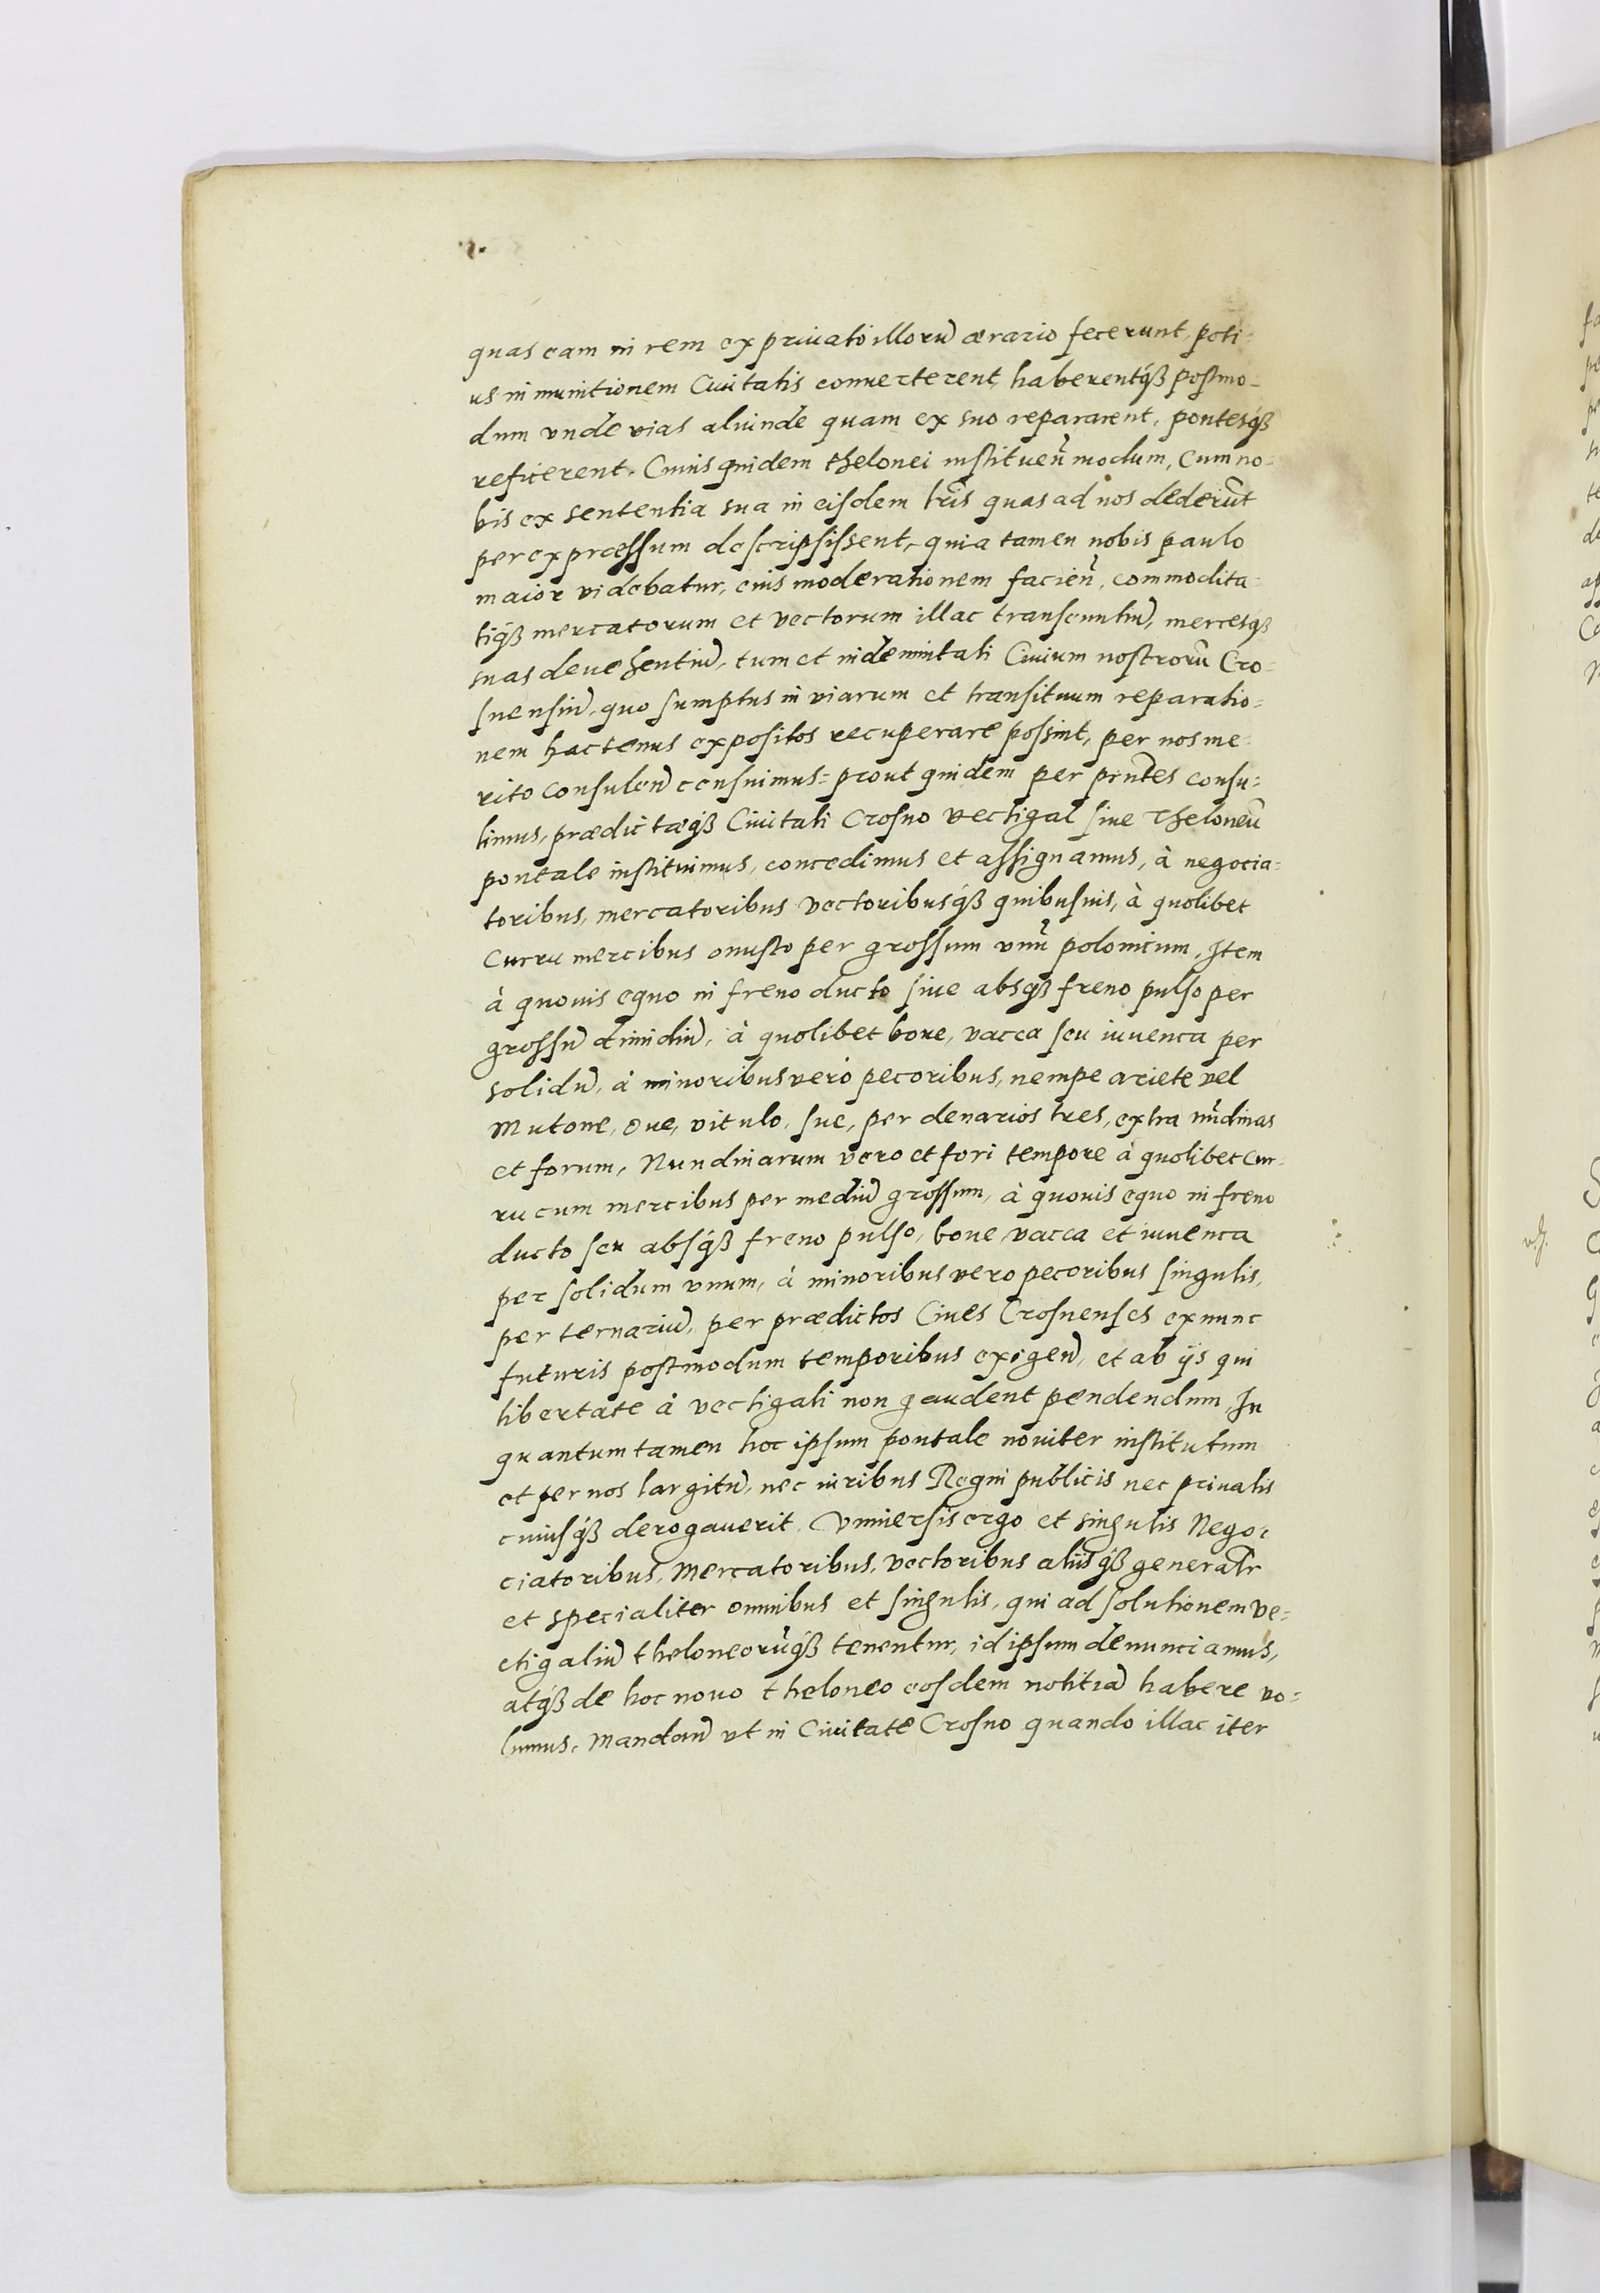 quas eam in rem ex priuato illorũ ærario fecerunt, poti-
us in munitionem Ciuitatis conuerterent, haberentq́ꝫ postmo-
dum vnde vias aliunde quam ex suo repararent, pontesq́ꝫ
reficerent. Cuius quidem thelonei instituen̄ modum, cum no-
bis ex sententia sua in eisdem lr̃is quas ad nos dederũt
per expressum descripsissent, quia tamen nobis paulo
maior videbatur, eius moderationem facien̄, commodita-
tiq́ꝫ mercatorum et vectorum illac transeuntiũ, mercesq́ꝫ
suas deuehentiũ, tum et indemnitati Ciuium nostrorũ Cro-
snensiũ, quo sumptus in viarum et transituum reparatio-
nem hactenus expositos recuperare possint, per nos me-
rito consulend̄ censuimus: prout quidem per pñtes consu-
limus, prædictæq́ꝫ Ciuitati Crosno vectigal siue Theloneũ
pontale instituimus, concedimus et assignamus, à negocia-
toribus, mercatoribus vectoribusq́ꝫ quibusuis, à quolibet
curru mercibus onusto per grossum vnũ polonicum, Item
à quouis equo in freno ducto siue absq́ꝫ freno pulso per
grossũ dimidiũ, à quolibet boue, vacca seu iuuenca per
solidũ, à minoribus verò pecoribus, nempe ariete vel
Mutone, oue, vitulo, sue, per denarios tres, extra nũdinas
et forum, Nundinarum vero et fori tempore à quolibet cur-
ru cum mercibus per mediũ grossum, à quouis equo in freno
ducto seu absq́ꝫ freno pulso, boue, vacca et iuuenca
per solidum vnum, à minoribus vero pecoribus singulis,
per ternariũ, per prædictos Ciues Crosnenses ex nunc
futuris postmodum temporibus exigend̄, et ab ijs qui
libertate à vectigali non gaudent pendendum, In
quantum tamen hoc ipsum pontale nouiter institutum
et per nos largitũ, nec iuribus Regni publicis nec priuatis
cuiusq́ꝫ derogauerit. Vniuersis ergo et singulis Nego-
ciatoribus, Mercatoribus, vectoribus alijsq́ꝫ generalr̃
et specialiter omnibus et singulis, qui ad solutionem ve-
ctigaliũ theloneorũq́ꝫ tenentur, id ipsum denunciamus,
atq́ꝫ de hoc nouo theloneo eosdem notitiã habere vo-
lumus, Mandan̄ vt in Ciuitate Crosno quando illac iter